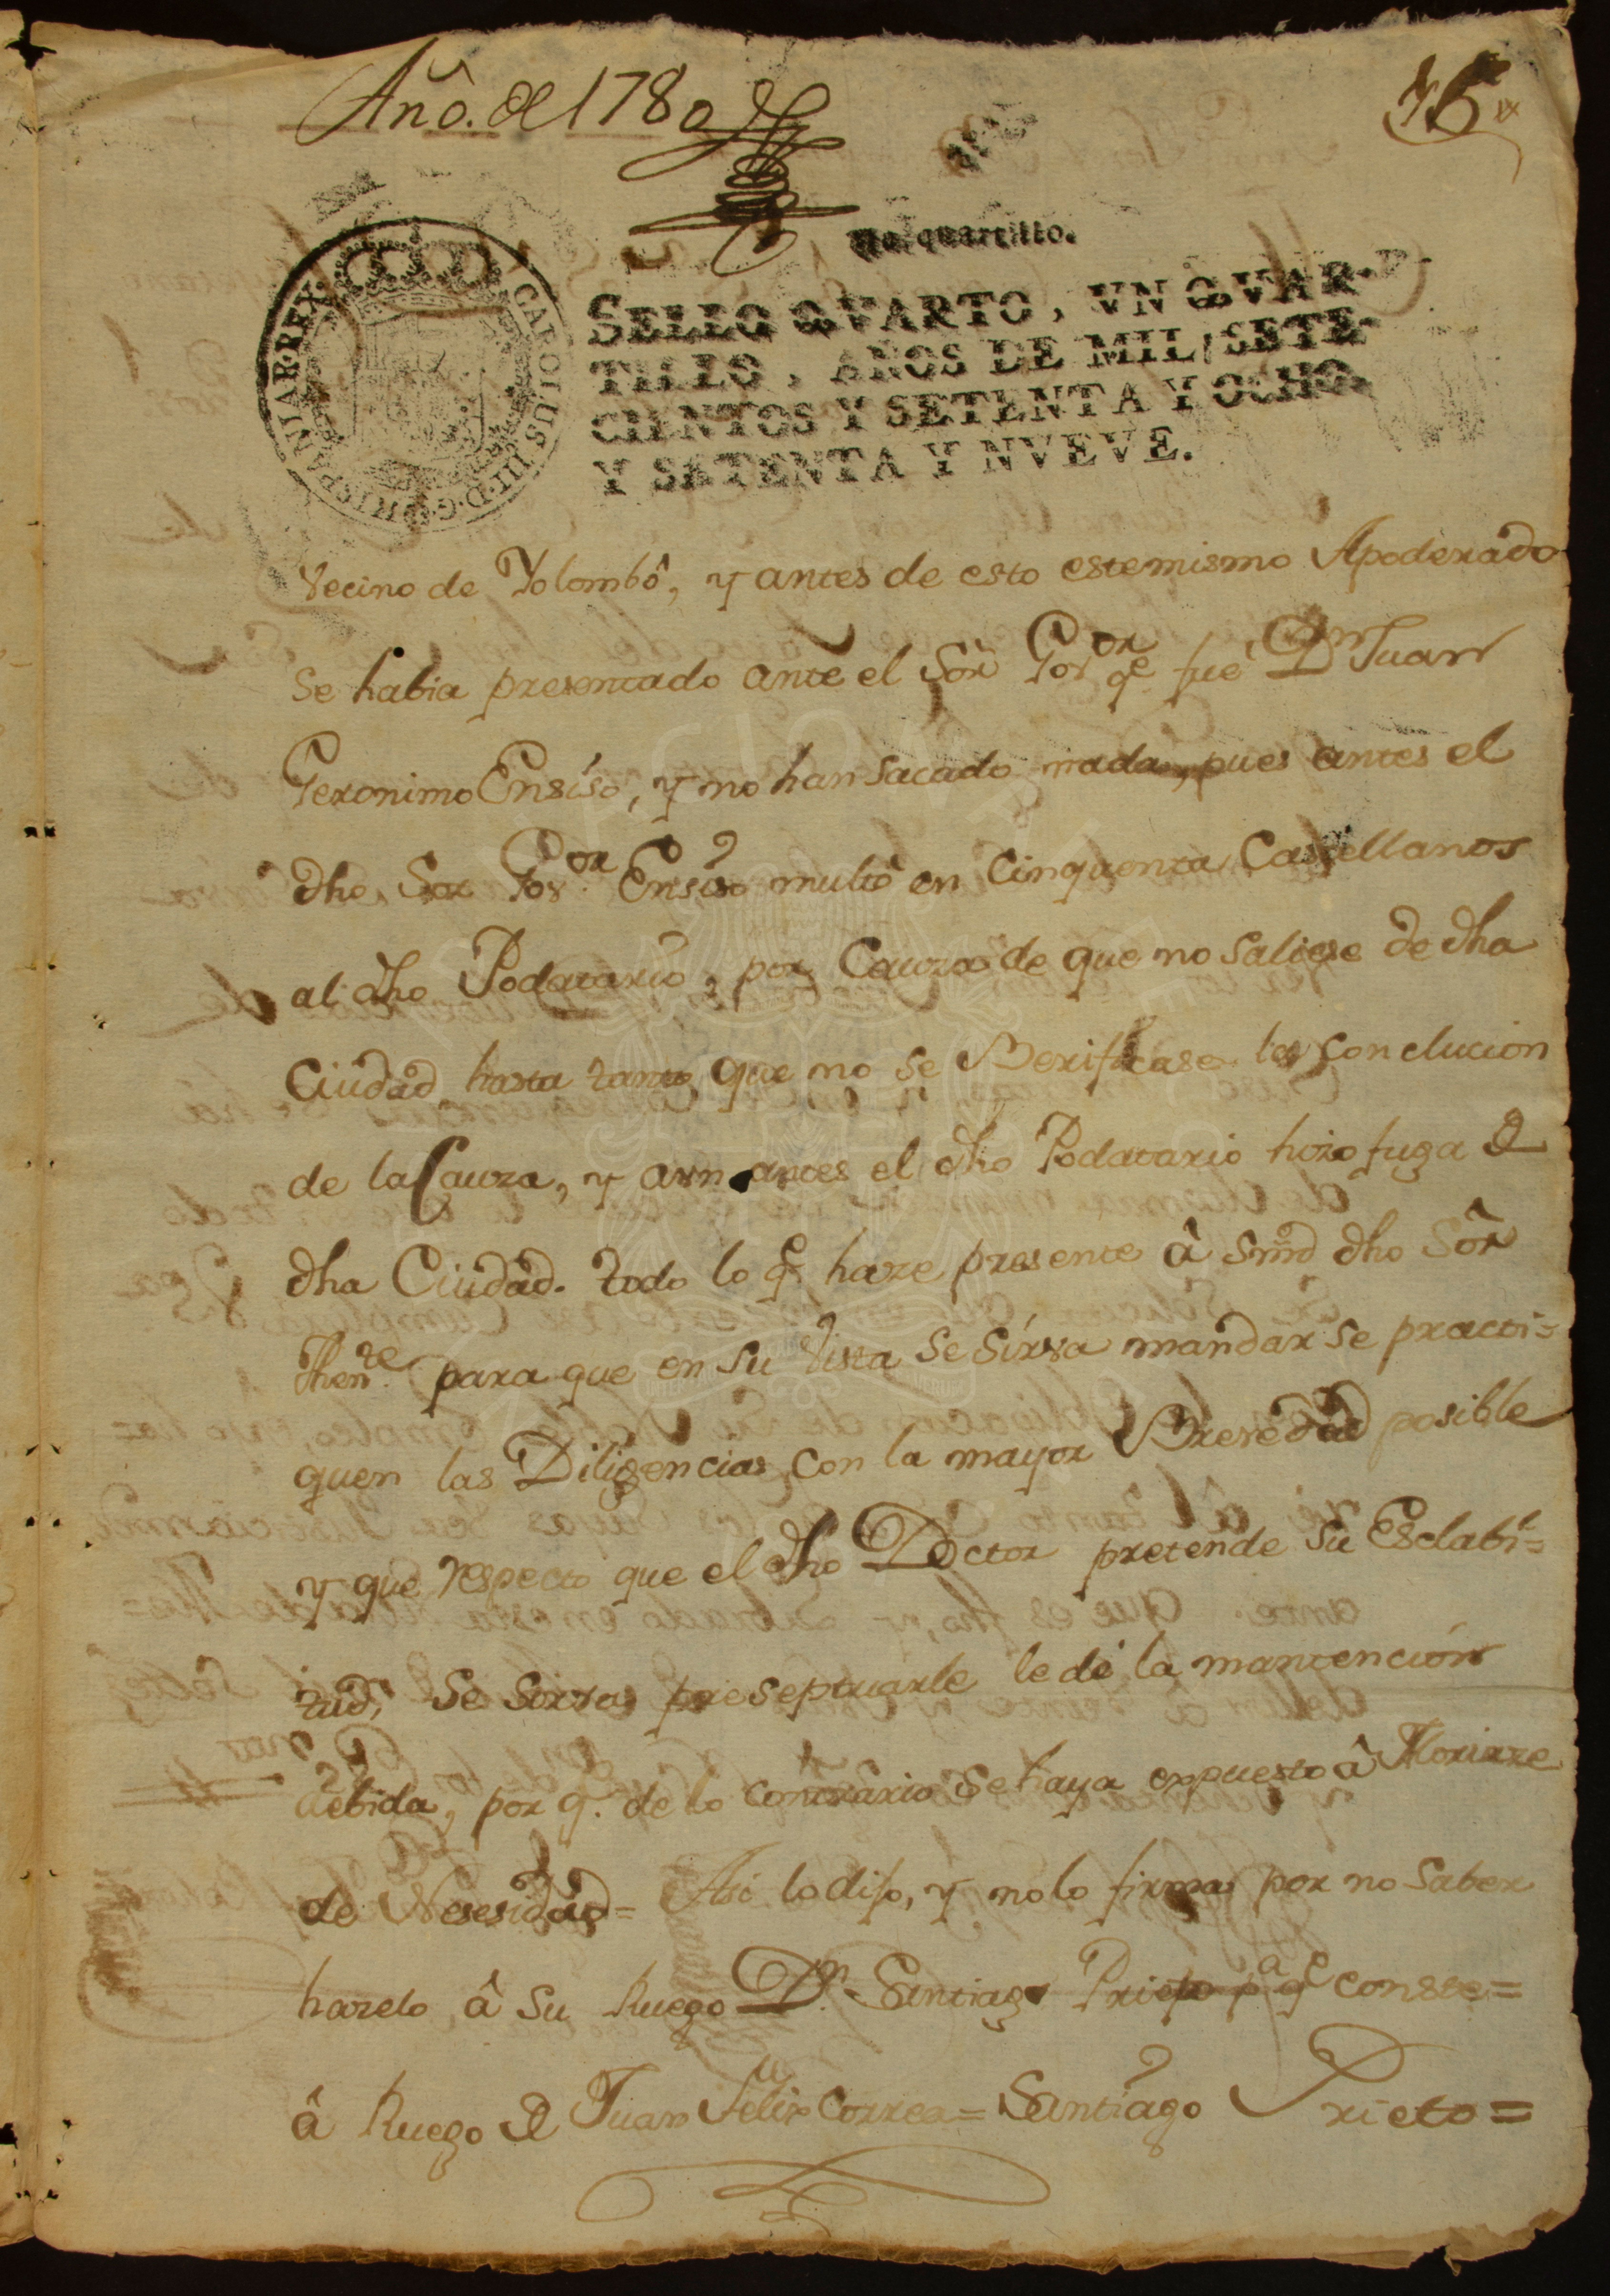 Año. de 1780
Un quartillo.
CAROLUS III D. G. HISPANIAR. REX.
SELLO QVARTO, VN QVAR-
TILLO, AÑOS DE MIL SETE-
CIENTOS Y SETENTA Y OCHO,
Y SETENTA Y NVEVE.
Vecino de Yolombô, y antes de esto estemismo Apoderado
Se habia presentado ante el Sor Gov.or q.e fue D.n Juan
Geronimo Ensiso, y no han sacado nada, pues antes el
dho Sor Gov.or Ensiso multô en Cinquenta Castellanos
al dho Podatario, por Cauza de que no saliese de dha
Ciudad hasta tanto que no se Berificase la Conclucion
de la Cauza, y aun antes el dho Podatario hizo fuga de
dha Ciudad. todo lo q.e haze presente â Smrd dho Sor
Then.te para que en su Vista Se Sirva mandar se practi=
quen las Diligencias Con la mayor Brevedad posible
y que respecto que el dho Doctor pretende su Esclabi=
tud, Se Sirva preseptuarle le dé la mantencion
debida, por q. de lo contrario Sehaya expuesto â Morirze
de Nesesidad= Asi lo dijo, y nolo firma por no Saber
hazelo, â su Ruego D.n Santiago Prieto p.a q.e conste=
â Ruego de Juan Felix Correa= Santiago Prieto=